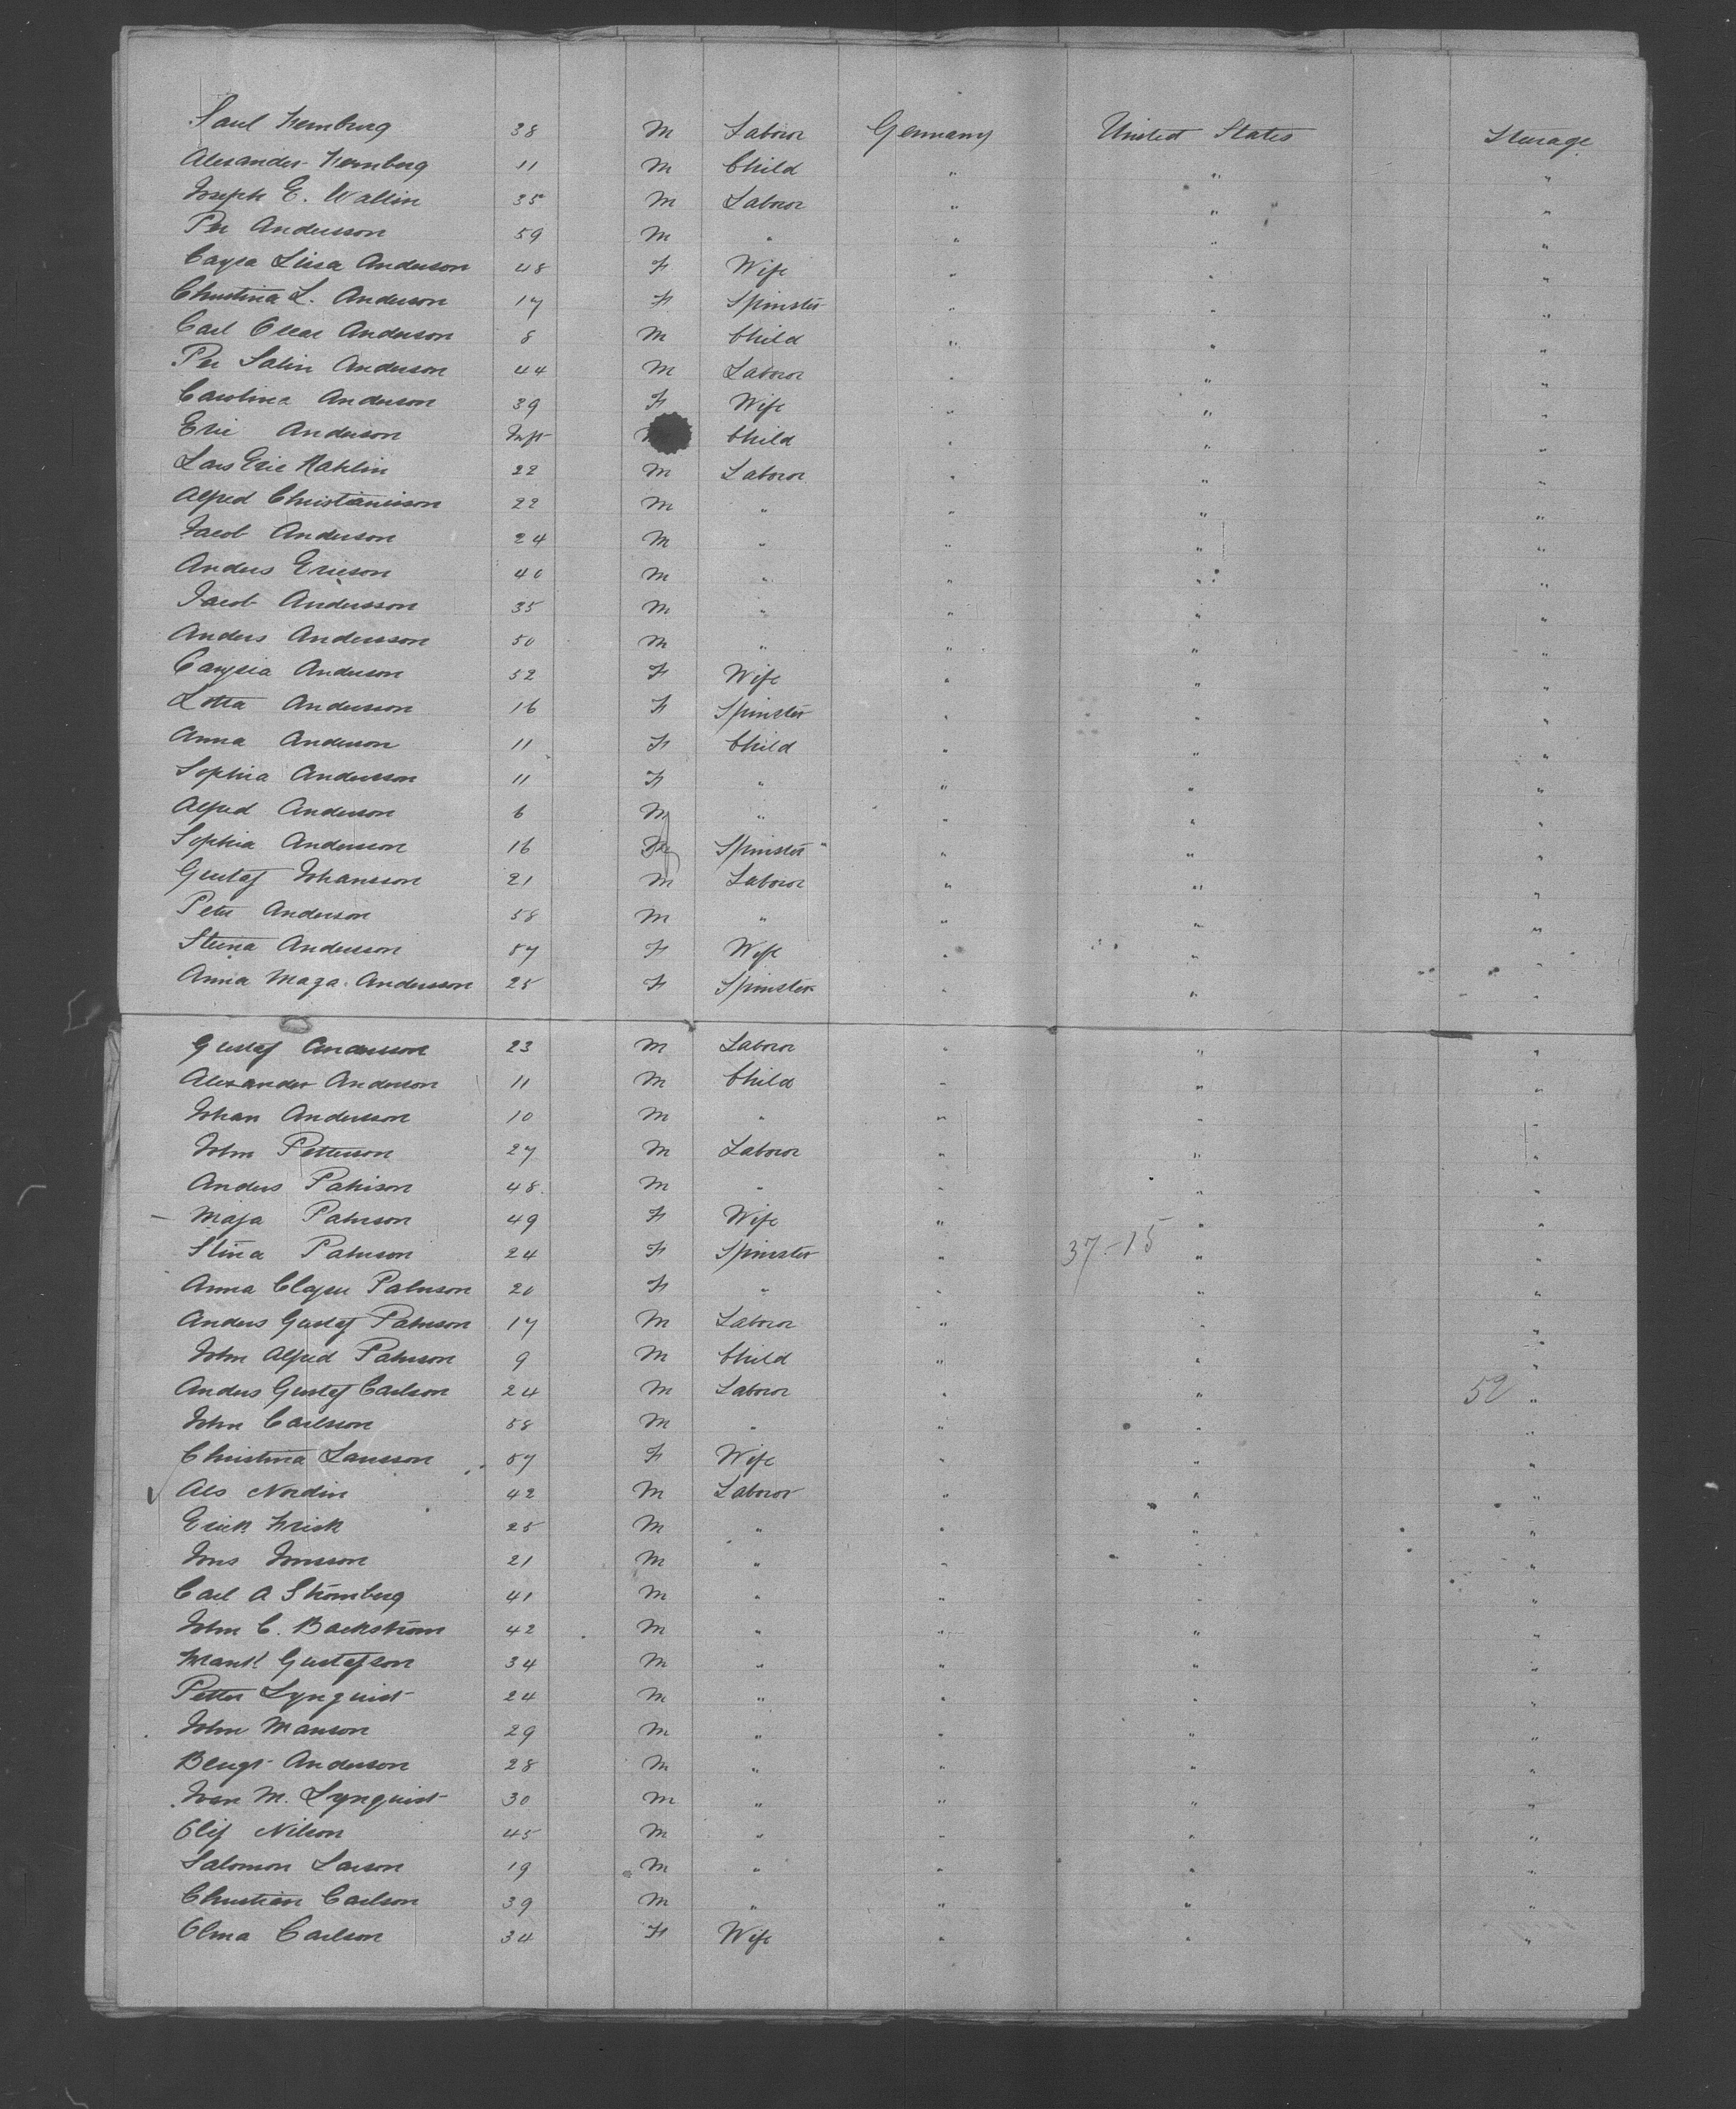 Paul Fernberg 38 M Laboror Germany United States Sterage
Alexander Fernberg 11 M Child " " "
Joseph E. Wallin 35 M Laboror " " "
Per Andersson 59 M " " " "
Caysa Lissa Anderson 48 F Wife " " "
Christina L. Anderson 17 F Spinster " " "
Carl Oscar Anderson 8 M Child " " "
Per Salin Anderson 44 M Laboror " " "
Carolina Anderson 39 F Wife " " "
Eric Anderson Inft M Child " " "
Lars Eric Kahlin 22 M Laboror " " "
Alfred Christianison 22 M " " " "
Jacob Anderson 24 M " " " "
Anders Ericson 40 M " " " "
Jacob Andersson 35 M " " " "
Anders Andersson 50 M " " " "
Caysia Anderson 52 F Wife " " "
Lotta Andersson 16 F Spinster " " "
Anna Anderson 11 F Child " " "
Sophia Andersson 11 F " " " "
Alfred Anderson 6 M " " " "
Sophia Anderson 16 Spinster " " "
Gustaf Johansson 21 M Laboror " " "
Peter Anderson 58 M " " " "
Steina Andersson 57 F Wife " " "
Anna Maga. Andersson 25 F Spinster " " "
Gustaf Andersson 23 M Laboror " " "
Alexander Anderson 11 M Child " " "
Johan Andersson 10 M " " " "
John Petterson 27 M Laboror " " "
Anders Pahrson 48 M " " " "
Maja Pahrson 49 F Wife " " "
Stina Pahrson 24 F Spinster " 37-15 " "
Anna Pahrson 20 F " " " "
Anders Gustaf Pahrson 17 M Laboror " " "
John Alfred Pahrson 9 M Child " " "
Anders Gustaf Carlson 24 M Laboror " " 52 "
John Carlsson 58 M " " " "
Christina Larsson 57 F Wife " " "
Als Nordin 42 M Laboror " " "
Erick Frisk 25 M " " " "
Jons Jonsson 21 M " " " "
Carl A Stromberg 41 M " " " "
John C. Backstrom 42 M " " " "
Frank Gustafson 34 M " " " "
Petter Lynquist 24 M " " " "
John Manson 29 M " " " "
Bengt Anderson 28 M " " " "
Ivan M. Lynquist 30 M " " " "
Olif Nilson 45 M " " " "
Salomon Larson 19 M " " " "
Christian Carlson 39 M " " " "
Olma Carlson 34 F Wife " " "